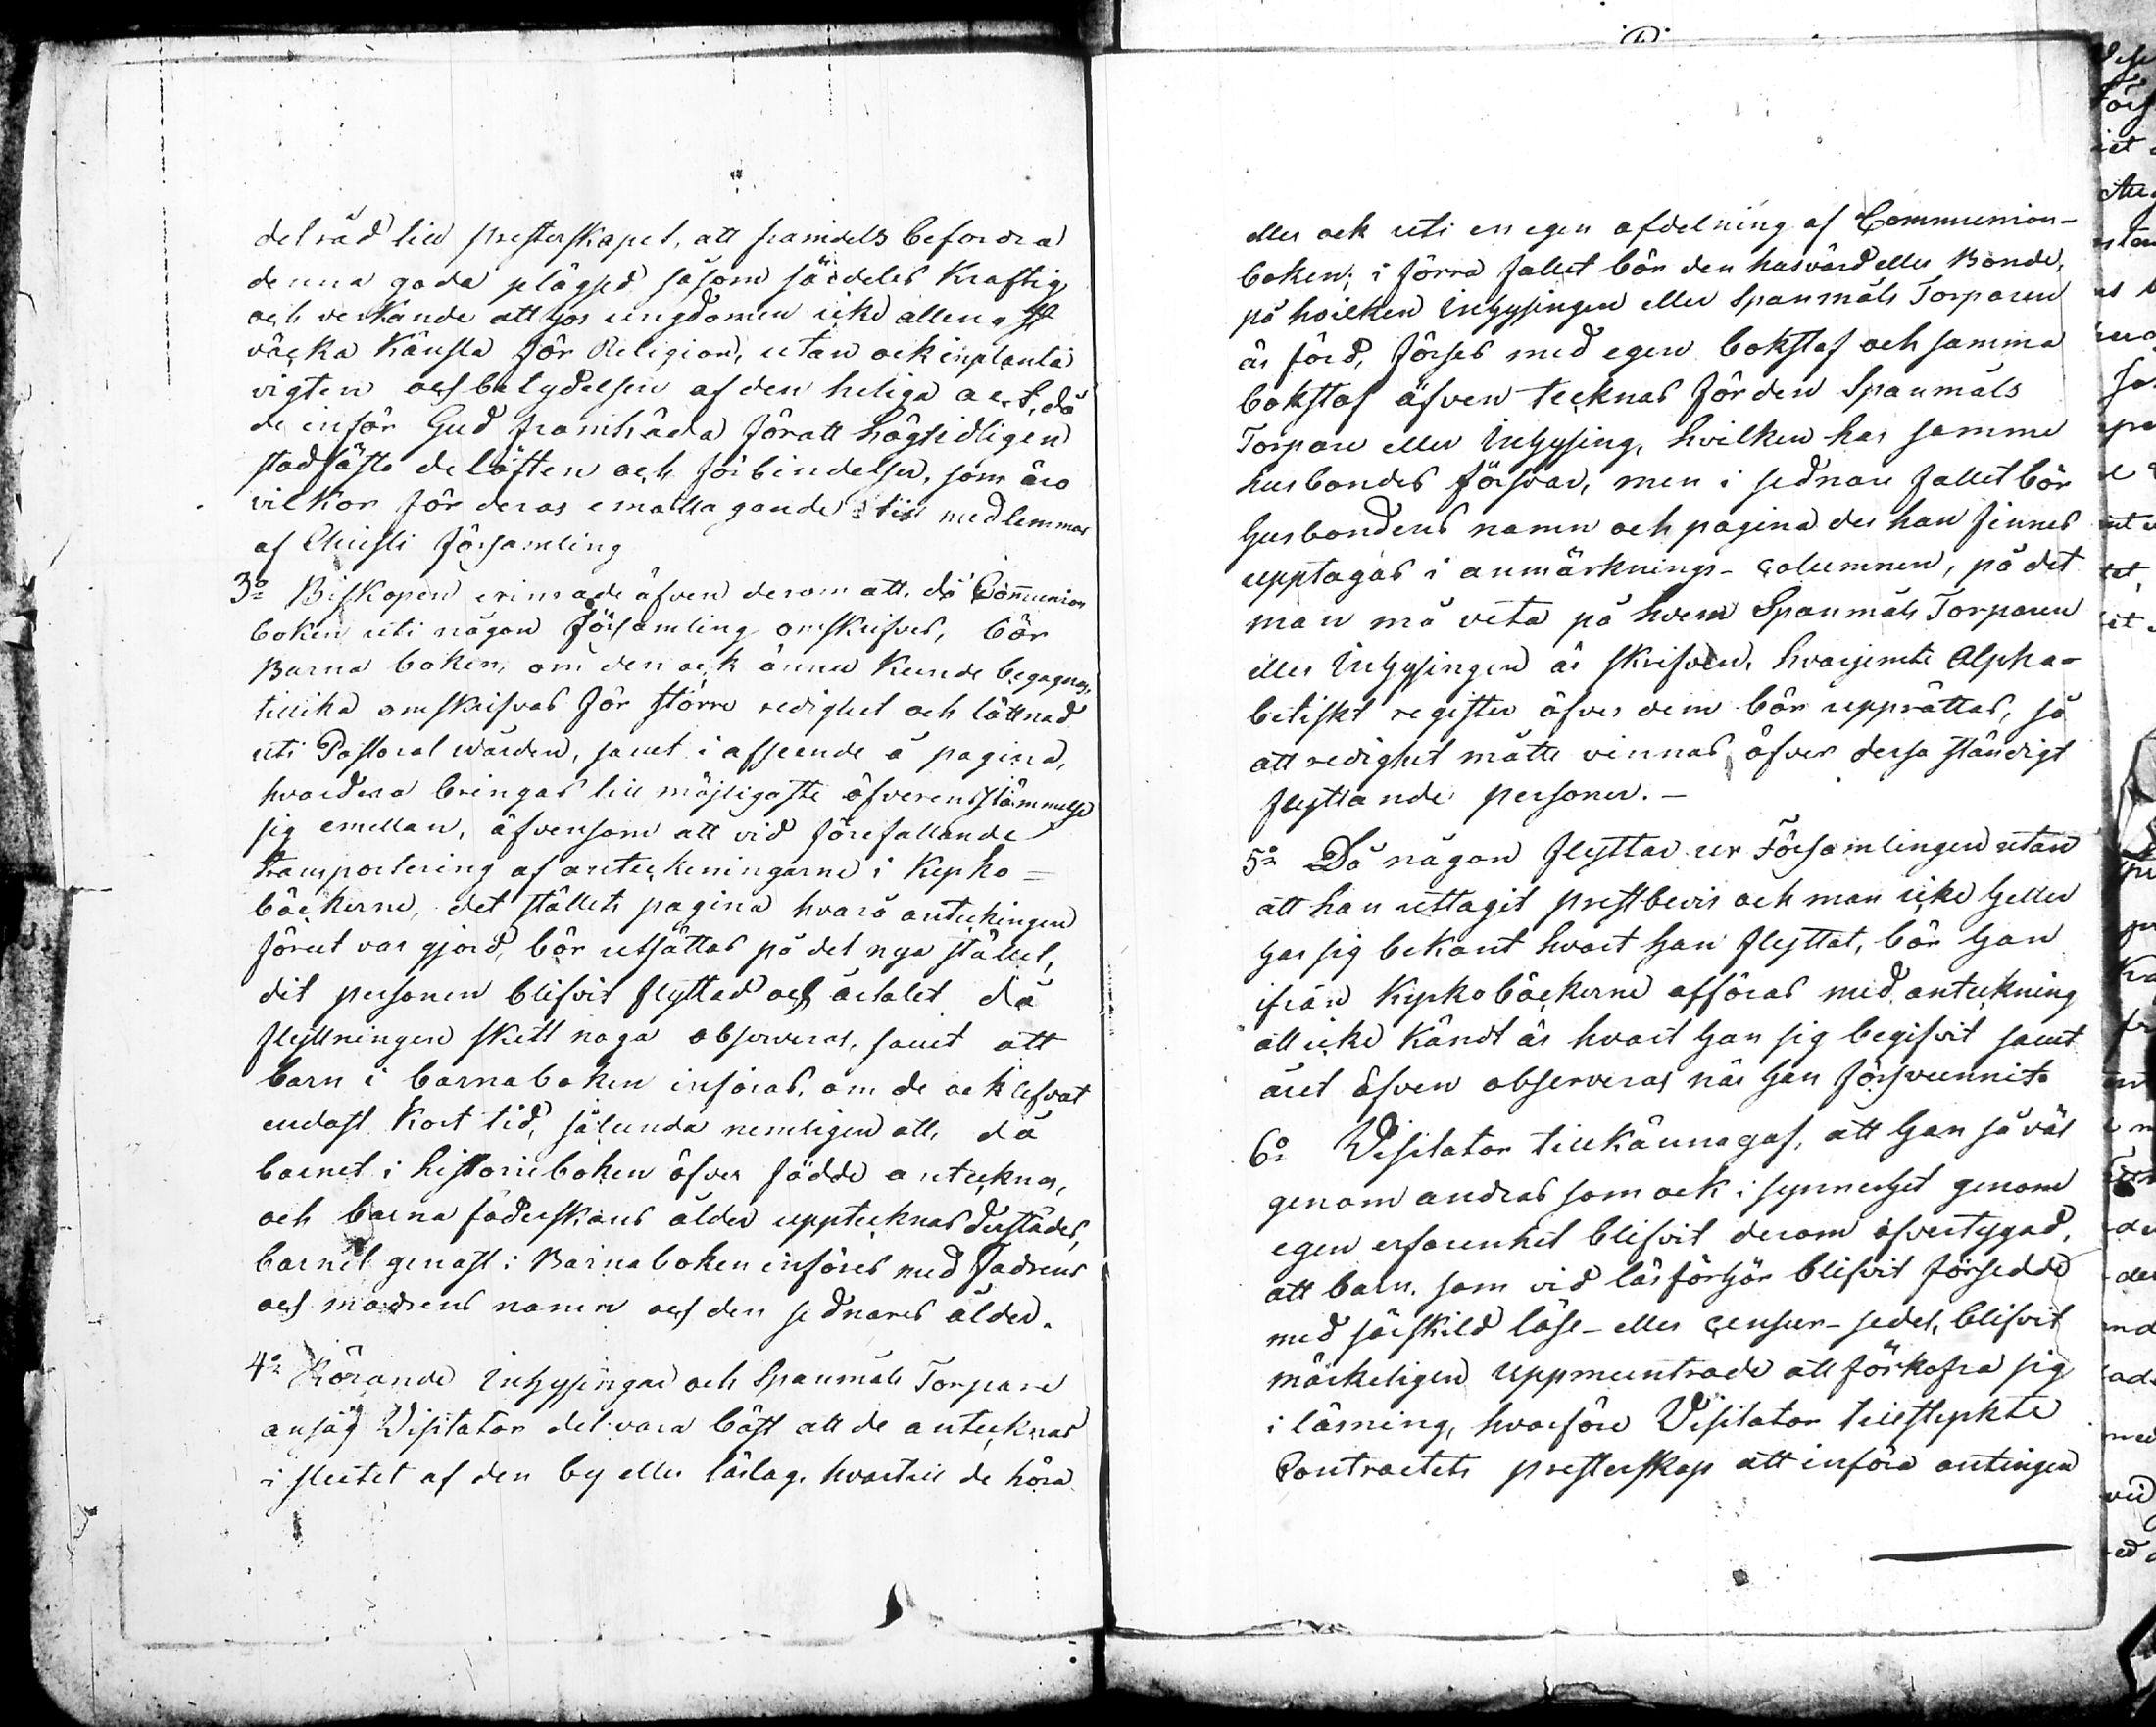 det råd till presterskapet, att framdels befordra
denna goda plägsed såsom särdeles kraftig
och verkande att hos ungdomen icke allenast
väcka känsla för Religion, utan ock inplanta
vigten och betydelsen af den heliga act, då
de inför Gud framträda för att högtidligen
stadfästa de löften och förbindelser, som äro
vilkor för deras emottagande till medlemmar
af Christi församling
3o Biskopen erinrade äfven derom att, då Communion
boken uti någon församling omskrifves, bör
Barna boken, om den ock ännu kunde begagnas,
tillika omskrifvas för större redighet och lättnad
uti Pastoral vården, samt i afseende å pagina,
hvardera bringas till möjligaste öfverensstämmelse
sig emellan, äfvensom att vid förefallande
transportering af anteckningarne i Kyrko-
böckerne, det ställets pagina hvarå anteckningen
förut var gjord, bör utsättas på det nya stället,
dit personen blifvit flyttad och årtalet då
flyttningen skett noga observeras, samt att
barn i barnaboken införas, om de ock lefvat
endast kort tid, sålunda nemligen att, då
barnet i historieboken öfver födde antecknas,
och barna föderskans ålder upptecknas derstädes,
barnet genast i Barnaboken införes med fadrens
och modrens namn och den sednares ålder.
4o Rörande Inhysingar och Spanmåls Torpare
ansåg Visitator det vara bäst att de antecknas
i slutet af den by eller läslag, hvartill de höra
eller ock uti en egen afdelning af Communion-
boken; i förra fallet bör den husvärd eller Bonde,
på hvilken Inhysingen eller Spanmåls Torparen
är förd, förses med egen bokstaf och samma
bokstaf äfven tecknas för den Spanmåls
Torpare eller Inhysing, hvilken har samme
husbondes försvar, men i sednare fallet bör
husbondens namn och pagina der han finnes
upptagas i anmärknings-columnen, på det
man må veta på hvem Spanmåls Torparen
eller Inhysingen är skrifven, hvarjemte Alpha-
betiskt register öfver dem bör upprättas, så
att redighet måtte vinnas öfver dessa ständigt
flyttande personer.-
5o Då någon flyttar ur Församlingen utan
att han uttagit prestbevis och man icke heller
har sig bekant hvart han flyttat, bör han
ifrån Kyrkoböckerne afföras med anteckning
att icke kändt är hvart han sig begifvit samt
året äfven observeras när han försvunnit.
6o Visitator tillkännagaf, att han så väl
genom andras som ock i synnerhet genom
egen erfarenhet blifvit derom öfvertygad,
att barn, som vid läsförhör blifvit försedde
med särskild läse- eller censur-sedel, blifvit
märkeligen uppmuntrade att förkofra sig
i läsning, hvarföre Visitator tillstyrkte
Contractets presterskap att införa antingen